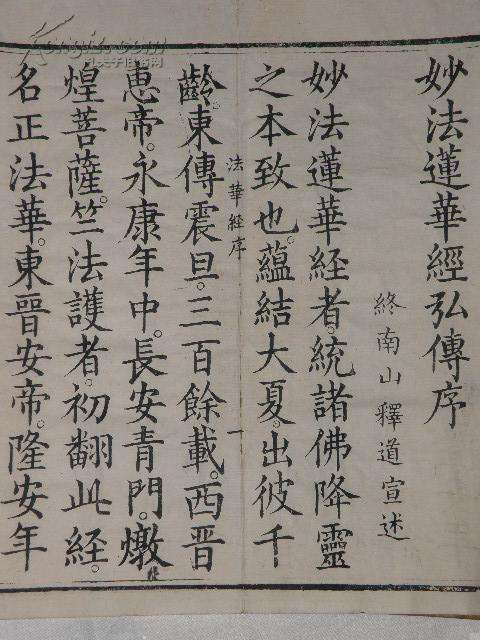 妙法蓮華經弘傳序
終南山釋道宣述
妙法蓮華経者。統諸佛降靈
之本致也。蘊結大夏。出彼千
法華経序
一
齡。東傳震旦。三百餘載。西晋
惠帝。永康年中。長安青門。燉
煌菩薩。竺法護者。初翻此経。
名正法華。東晋安帝。隆安年